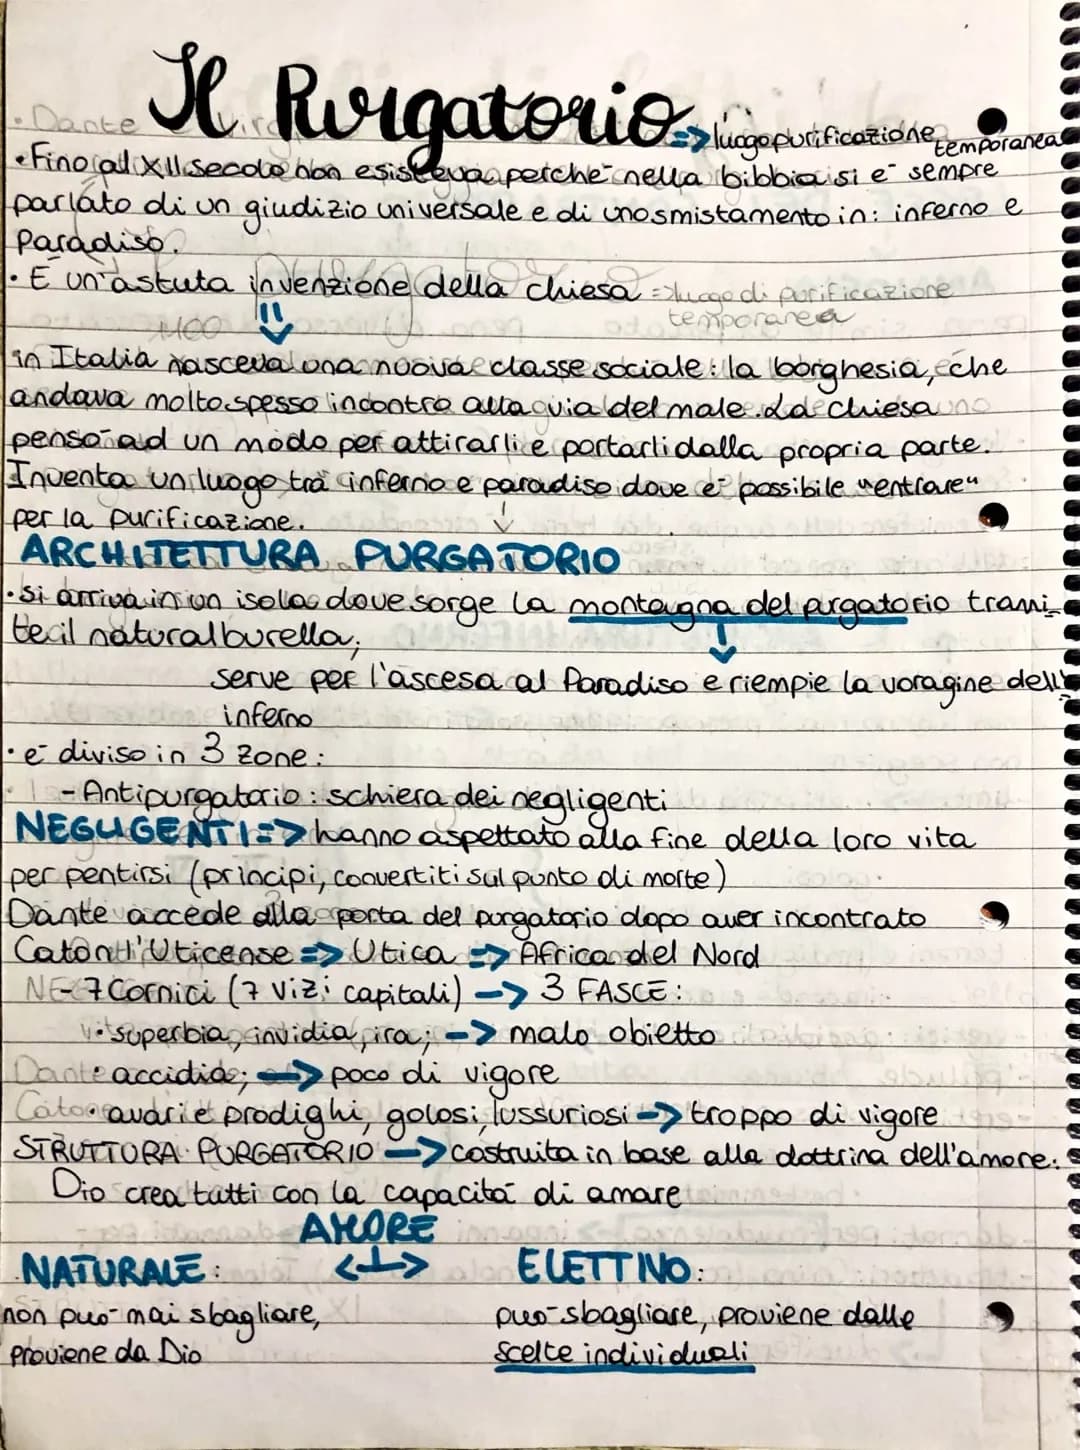 Il Purgatorio => luogo purificazione temporanea
• Fino al XII secolo non esisteva perchè nella bibbia si è sempre
parlato di un giudizio universale e di uno smistamento in: inferno e
Paradiso.
• È un'astuta invenzione della chiesa => luogo di purificazione
temporanea
in Italia nasceva una nuova classe sociale: la borghesia, che
andava molto spesso incontro alla via del male. La chiesa
pensò ad un modo per attirarli e portarli dalla propria parte.
Inventa un luogo tra inferno e paradiso dove è possibile "entrare"
per la purificazione.
ARCHITETTURA PURGATORIO
• si arriva in un isola dove sorge la montagna del purgatorio trami_
te il natural burella;
serve per l'ascesa al Paradiso e riempie la voragine dell'
inferno
• è diviso in 3 zone:
- Antipurgatorio: schiera dei negligenti
NEGLIGENTI => hanno aspettato alla fine della loro vita
per pentirsi (principi, convertiti sul punto di morte)
Dante accede alla porta del purgatorio dopo aver incontrato
Caton l'Uticense => Utica => Africa del Nord
- 7 Cornici (7 vizi capitali) -> 3 FASCE:
• superbia, invidia, ira; -> malo obietto
• accidia; -> poco di vigore
• avari e prodighi, golosi, lussuriosi -> troppo di vigore
STRUTTURA PURGATORIO -> costruita in base alla dottrina dell'amore:
Dio crea tutti con la capacità di amare
AMORE
NATURALE: <-> ELETTIVO:
non può mai sbagliare, può sbagliare, proviene dalle
proviene da Dio scelte individuali